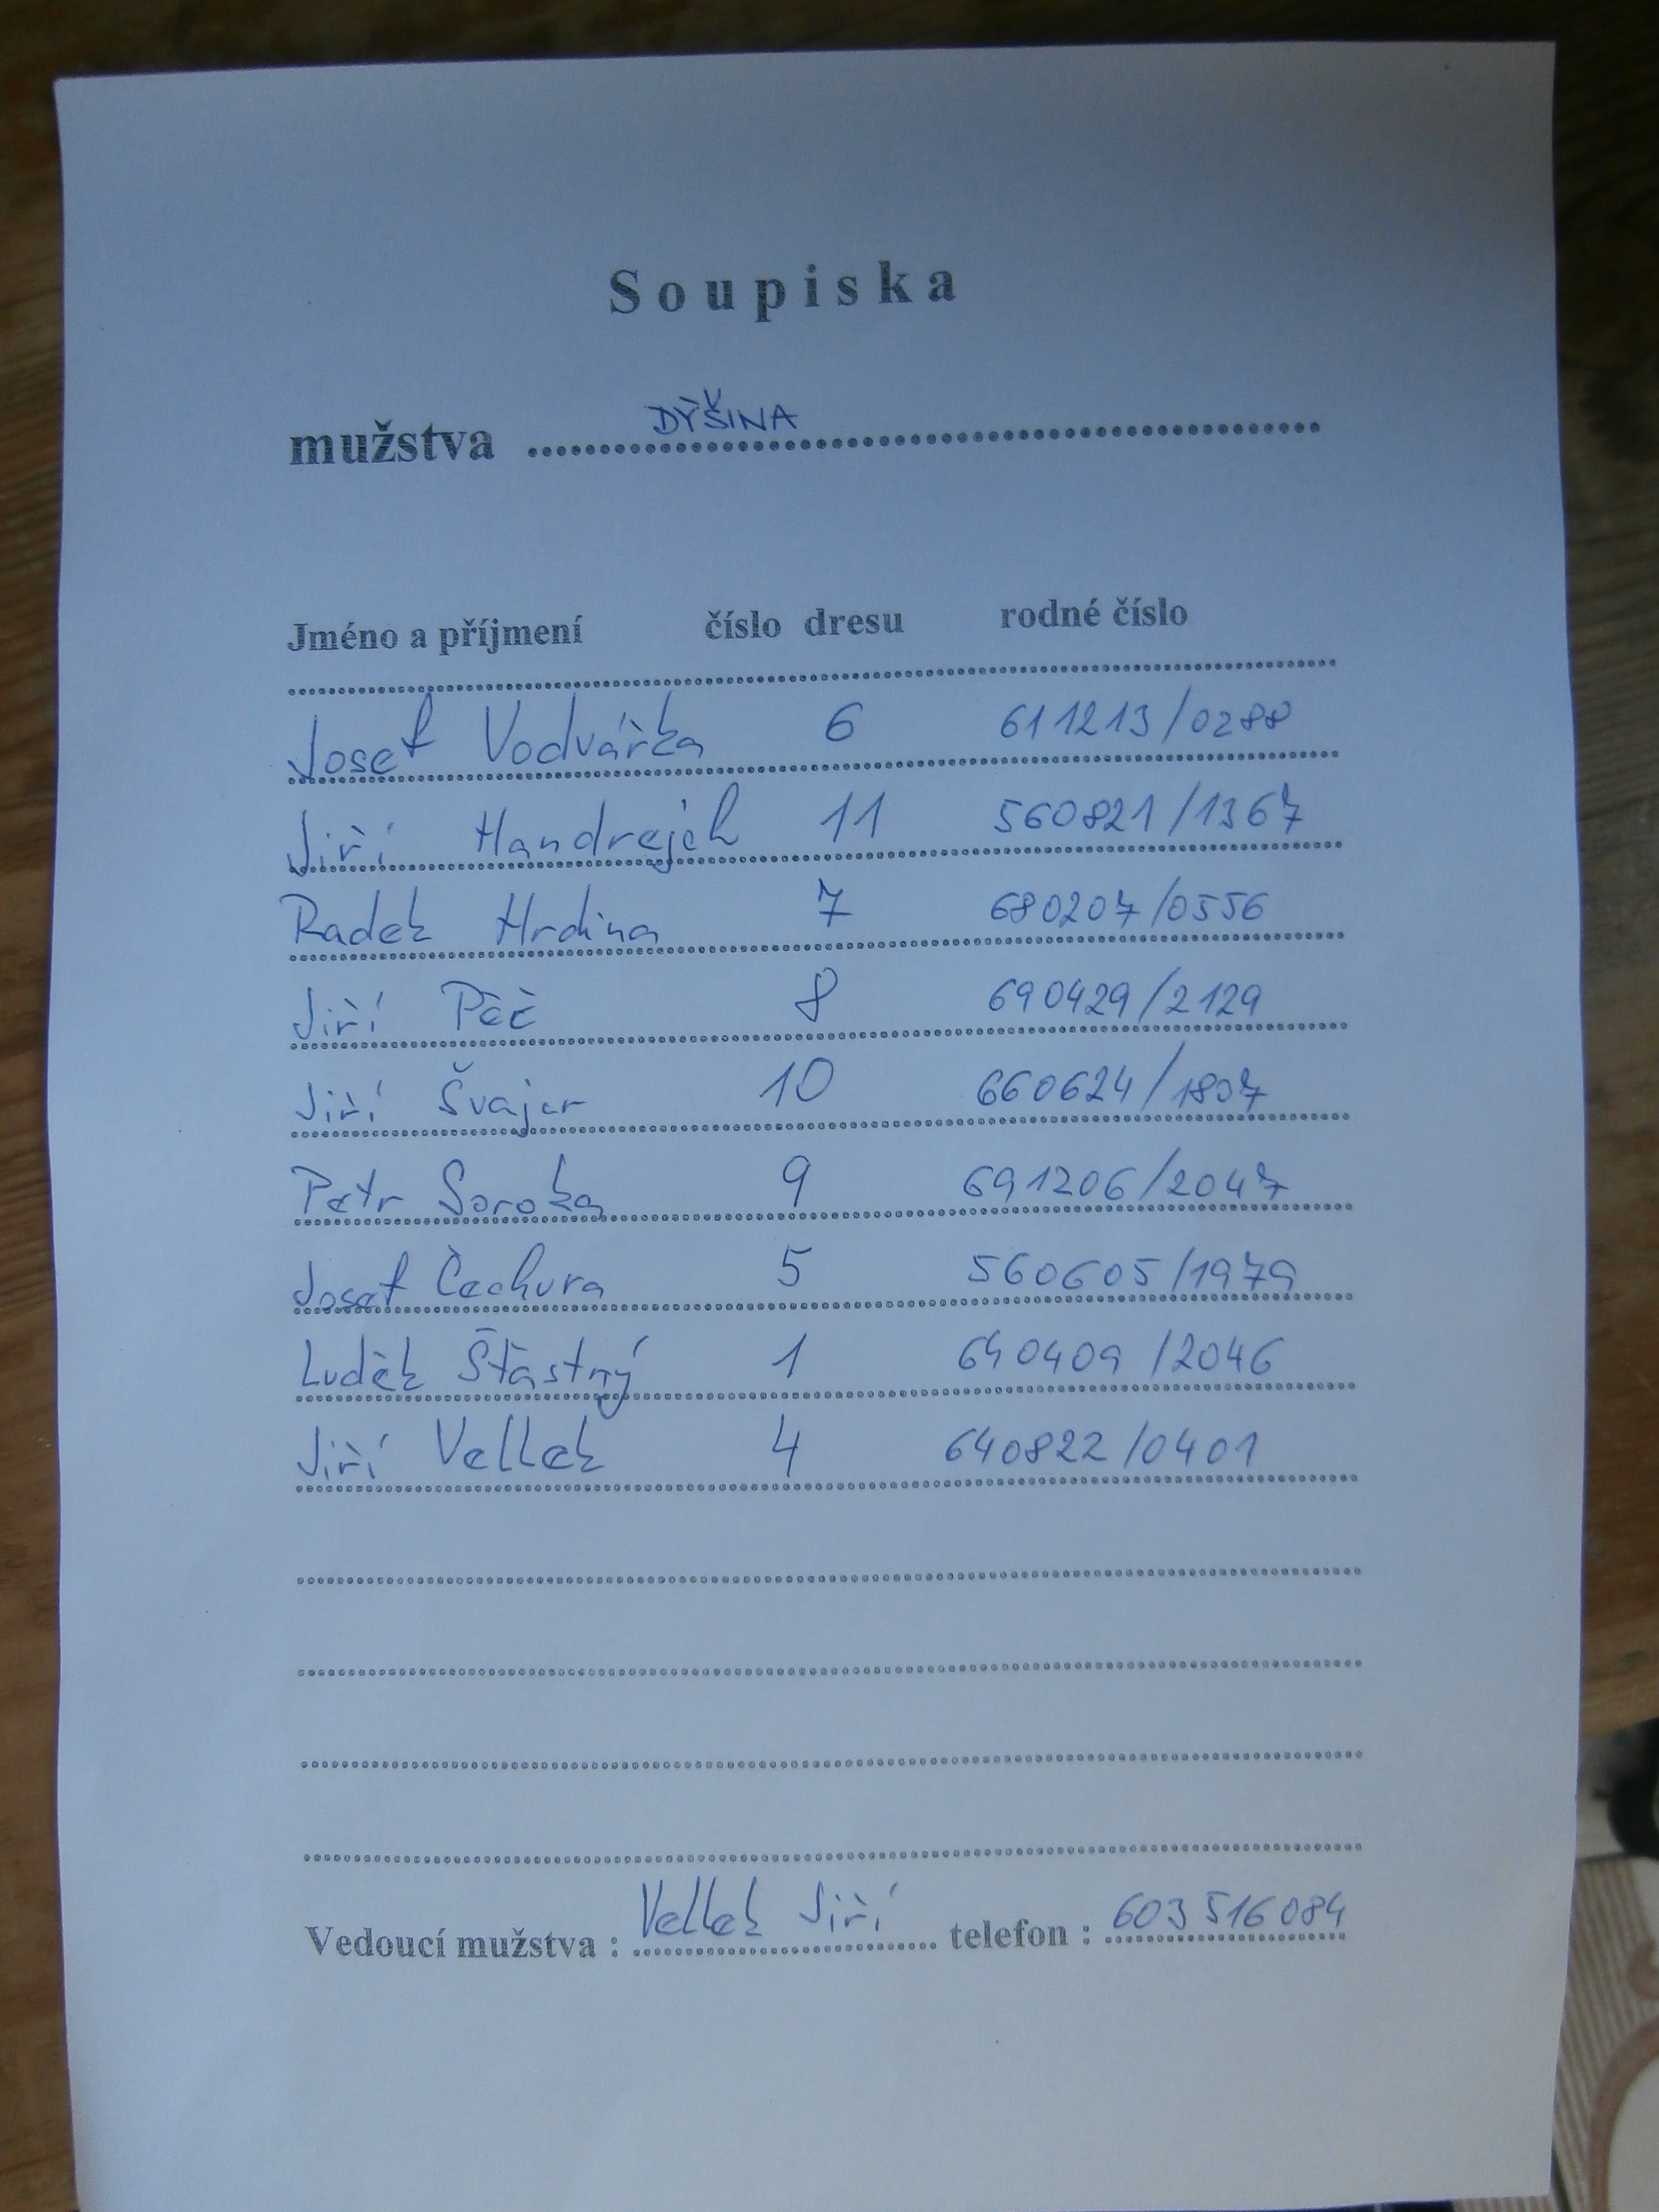 Soupiska
mužstva DÝŠINA
Jméno a příjmení číslo dresu rodné číslo
Josef Vodvářka 6 611213/0288
Jiří Handrejch 11 560821/1367
Radek Hrdina 7 680207/0556
Jiří Pěč 8 690429/2129
Jiří Švajer 10 660624/1807
Petr Soroka 9 691206/2047
Josef Čechura 5 560605/1979
Luděk Šťastný 1 640409/2046
Jiří Vellek 4 640822/0401
Vedoucí mužstva : Vellek Jiří telefon : 603 516 084